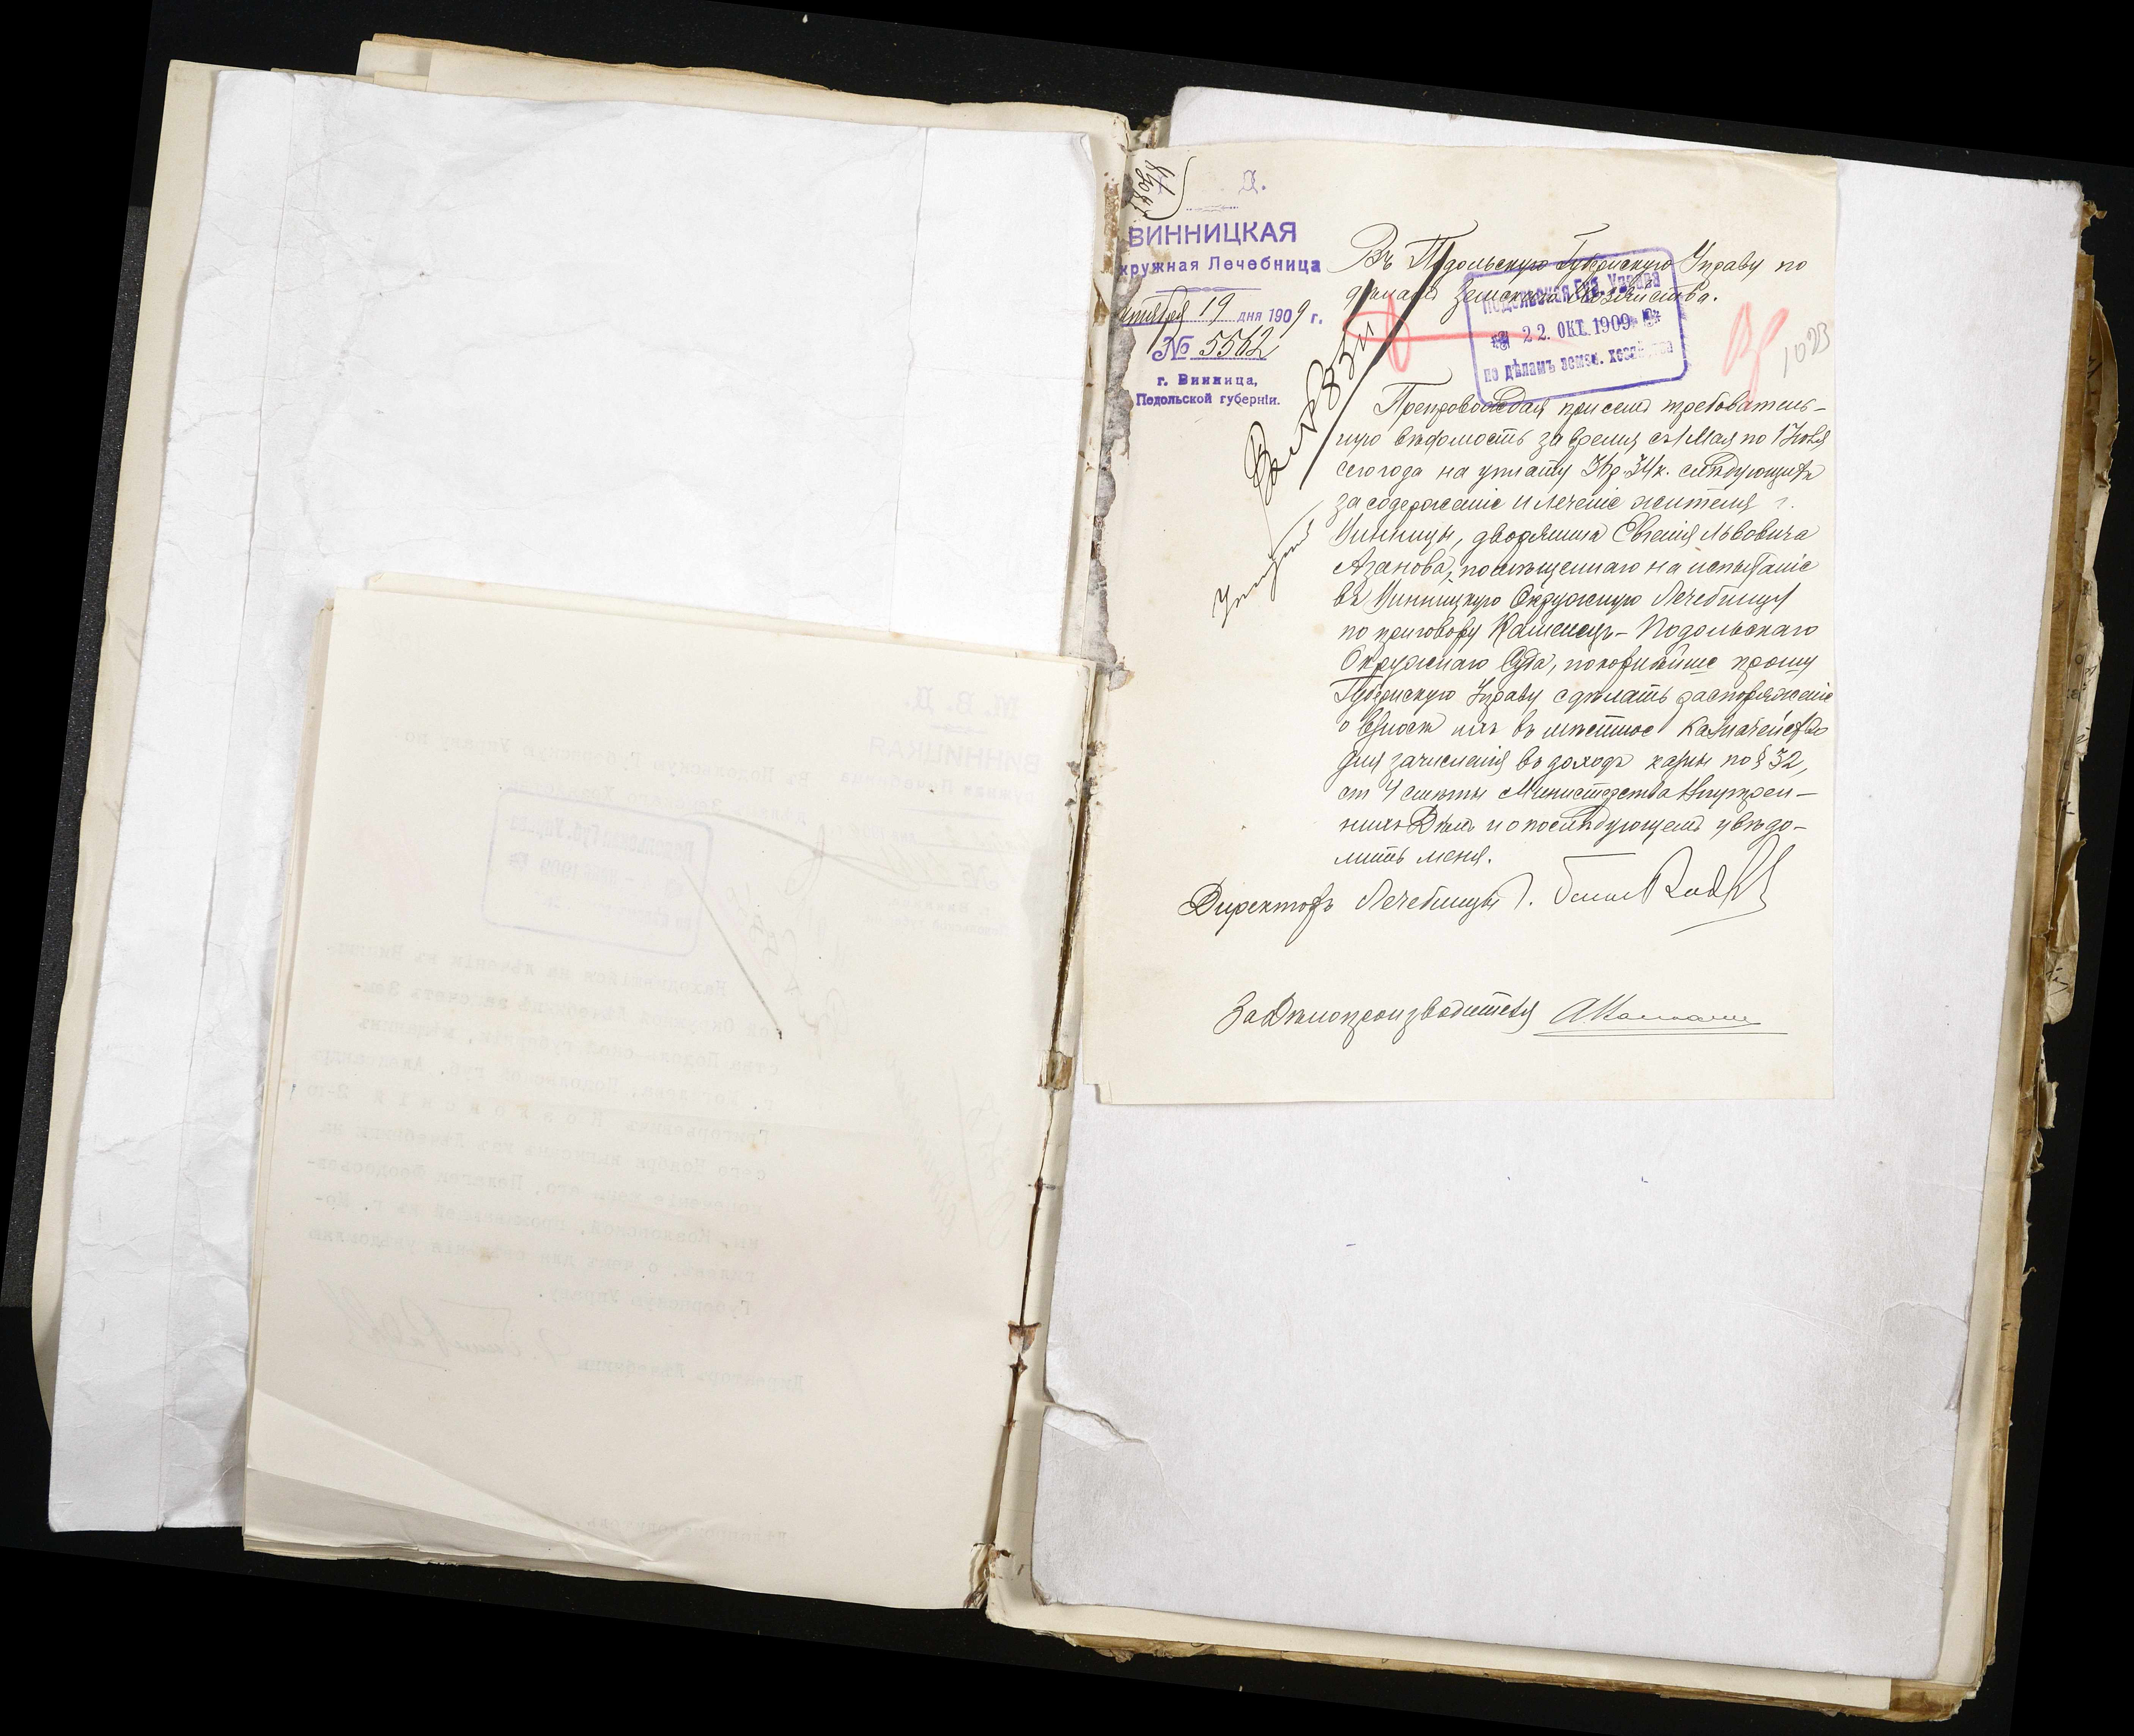 Д.
ВИННИЦКАЯ
кружная Лечебница
ктября 19 дня 1909 г.
№ 5562
г. Винница,
Подольской губерніи.
Въ Подольскую Губернскую Управу по
дѣламъ Земскаго Хозяйства.
Подольская Губ. Управа
22. ОКТ. 1909
по дѣламъ земск. хозяйства
Препровождая при семъ требователь-
ную вѣдомость за время съ 1 Мая по 1 Іюля
сего года на уплату 36р. 34к. слѣдующихъ
за содержаніе и леченіе жителя г.
Винницы, дворянина Евгенія Львовича
Азанова, помѣщеннаго на испытаніе
въ Винницкую Окружную Лечебницу
по приговору Каменецъ-Подольскаго
Окружнаго Суда, покорнѣйше прошу
Губернскую Управу сдѣлать распоряженіе
о взносѣ ихъ въ мѣстное Казначейство
для зачисленія въ доходъ казны по § 32,
ст 4 смѣты Министерства Внутрен-
нихъ Дѣлъ и о послѣдующемъ увѣдо-
мить меня.
Директоръ Лечебницы
За Дѣлопроизводителя